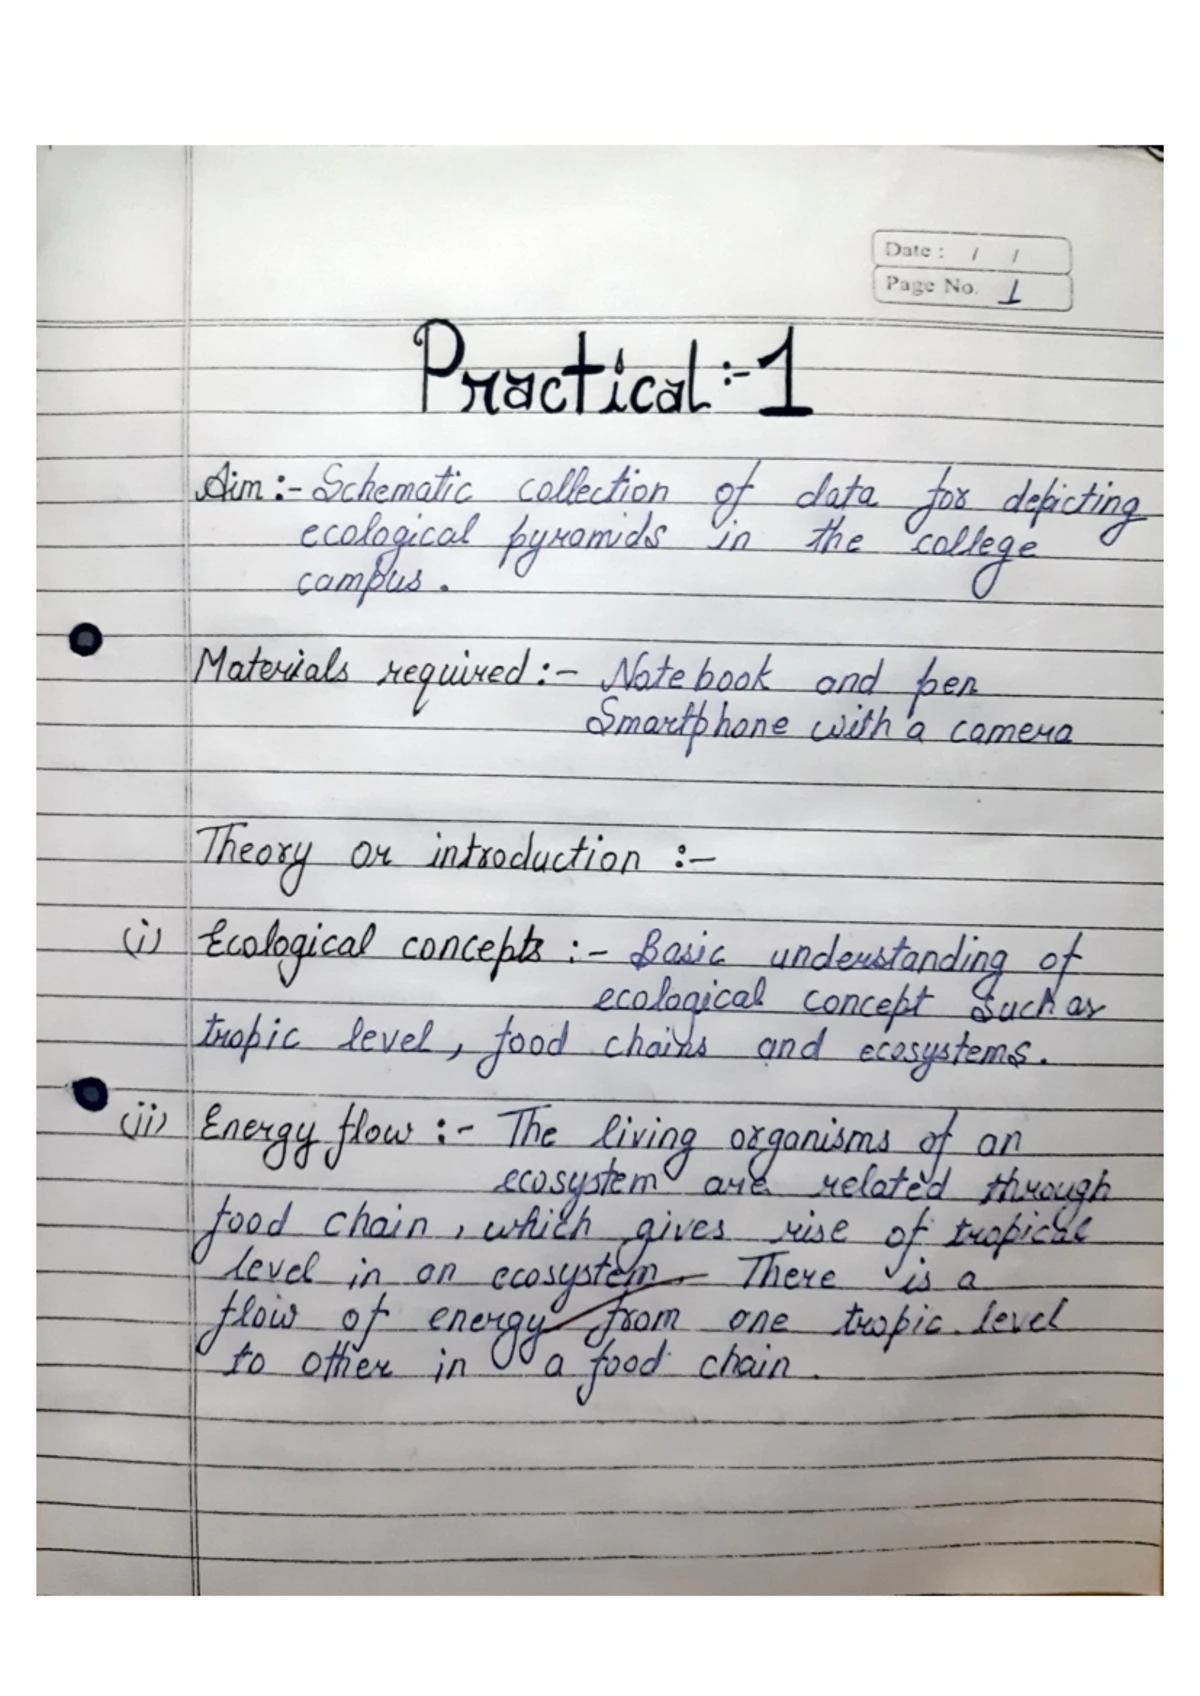 Date : / /
Page No. 1
Practical :- 1
Aim :- Schematic collection of data for depicting
ecological pyramids in the college
campus .
Materials required :- Notebook and pen
Smartphone with a camera
Theory or introduction :-
(i) Ecological concepts :- Basic understanding of
ecological concept such as
tropic level , food chains and ecosystems .
(ii) Energy flow :- The living organisms of an
ecosystem are related through
food chain , which gives rise of tropical
level in an ecosystem . There is a
flow of energy from one tropic level
to other in a food chain .